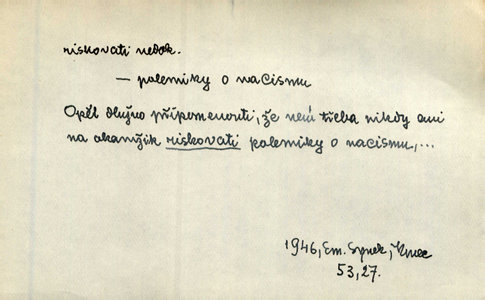 riskovati nedok.
— polemiky o nacismu
Opět dlužno připomenouti, že není třeba nikdy ani
na okamžik riskovati polemiky o nacismu,...
1946, Em. Synek,
53,27.